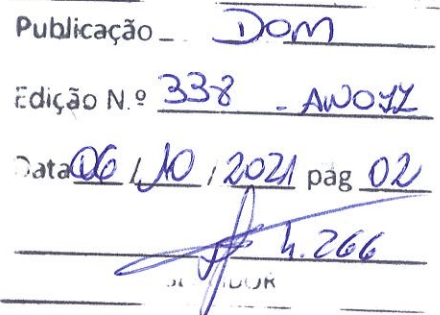 Publicação DOM
Edição N.º 338 - ANO II
Data 06 / 10 / 2021 pág 02
4.266